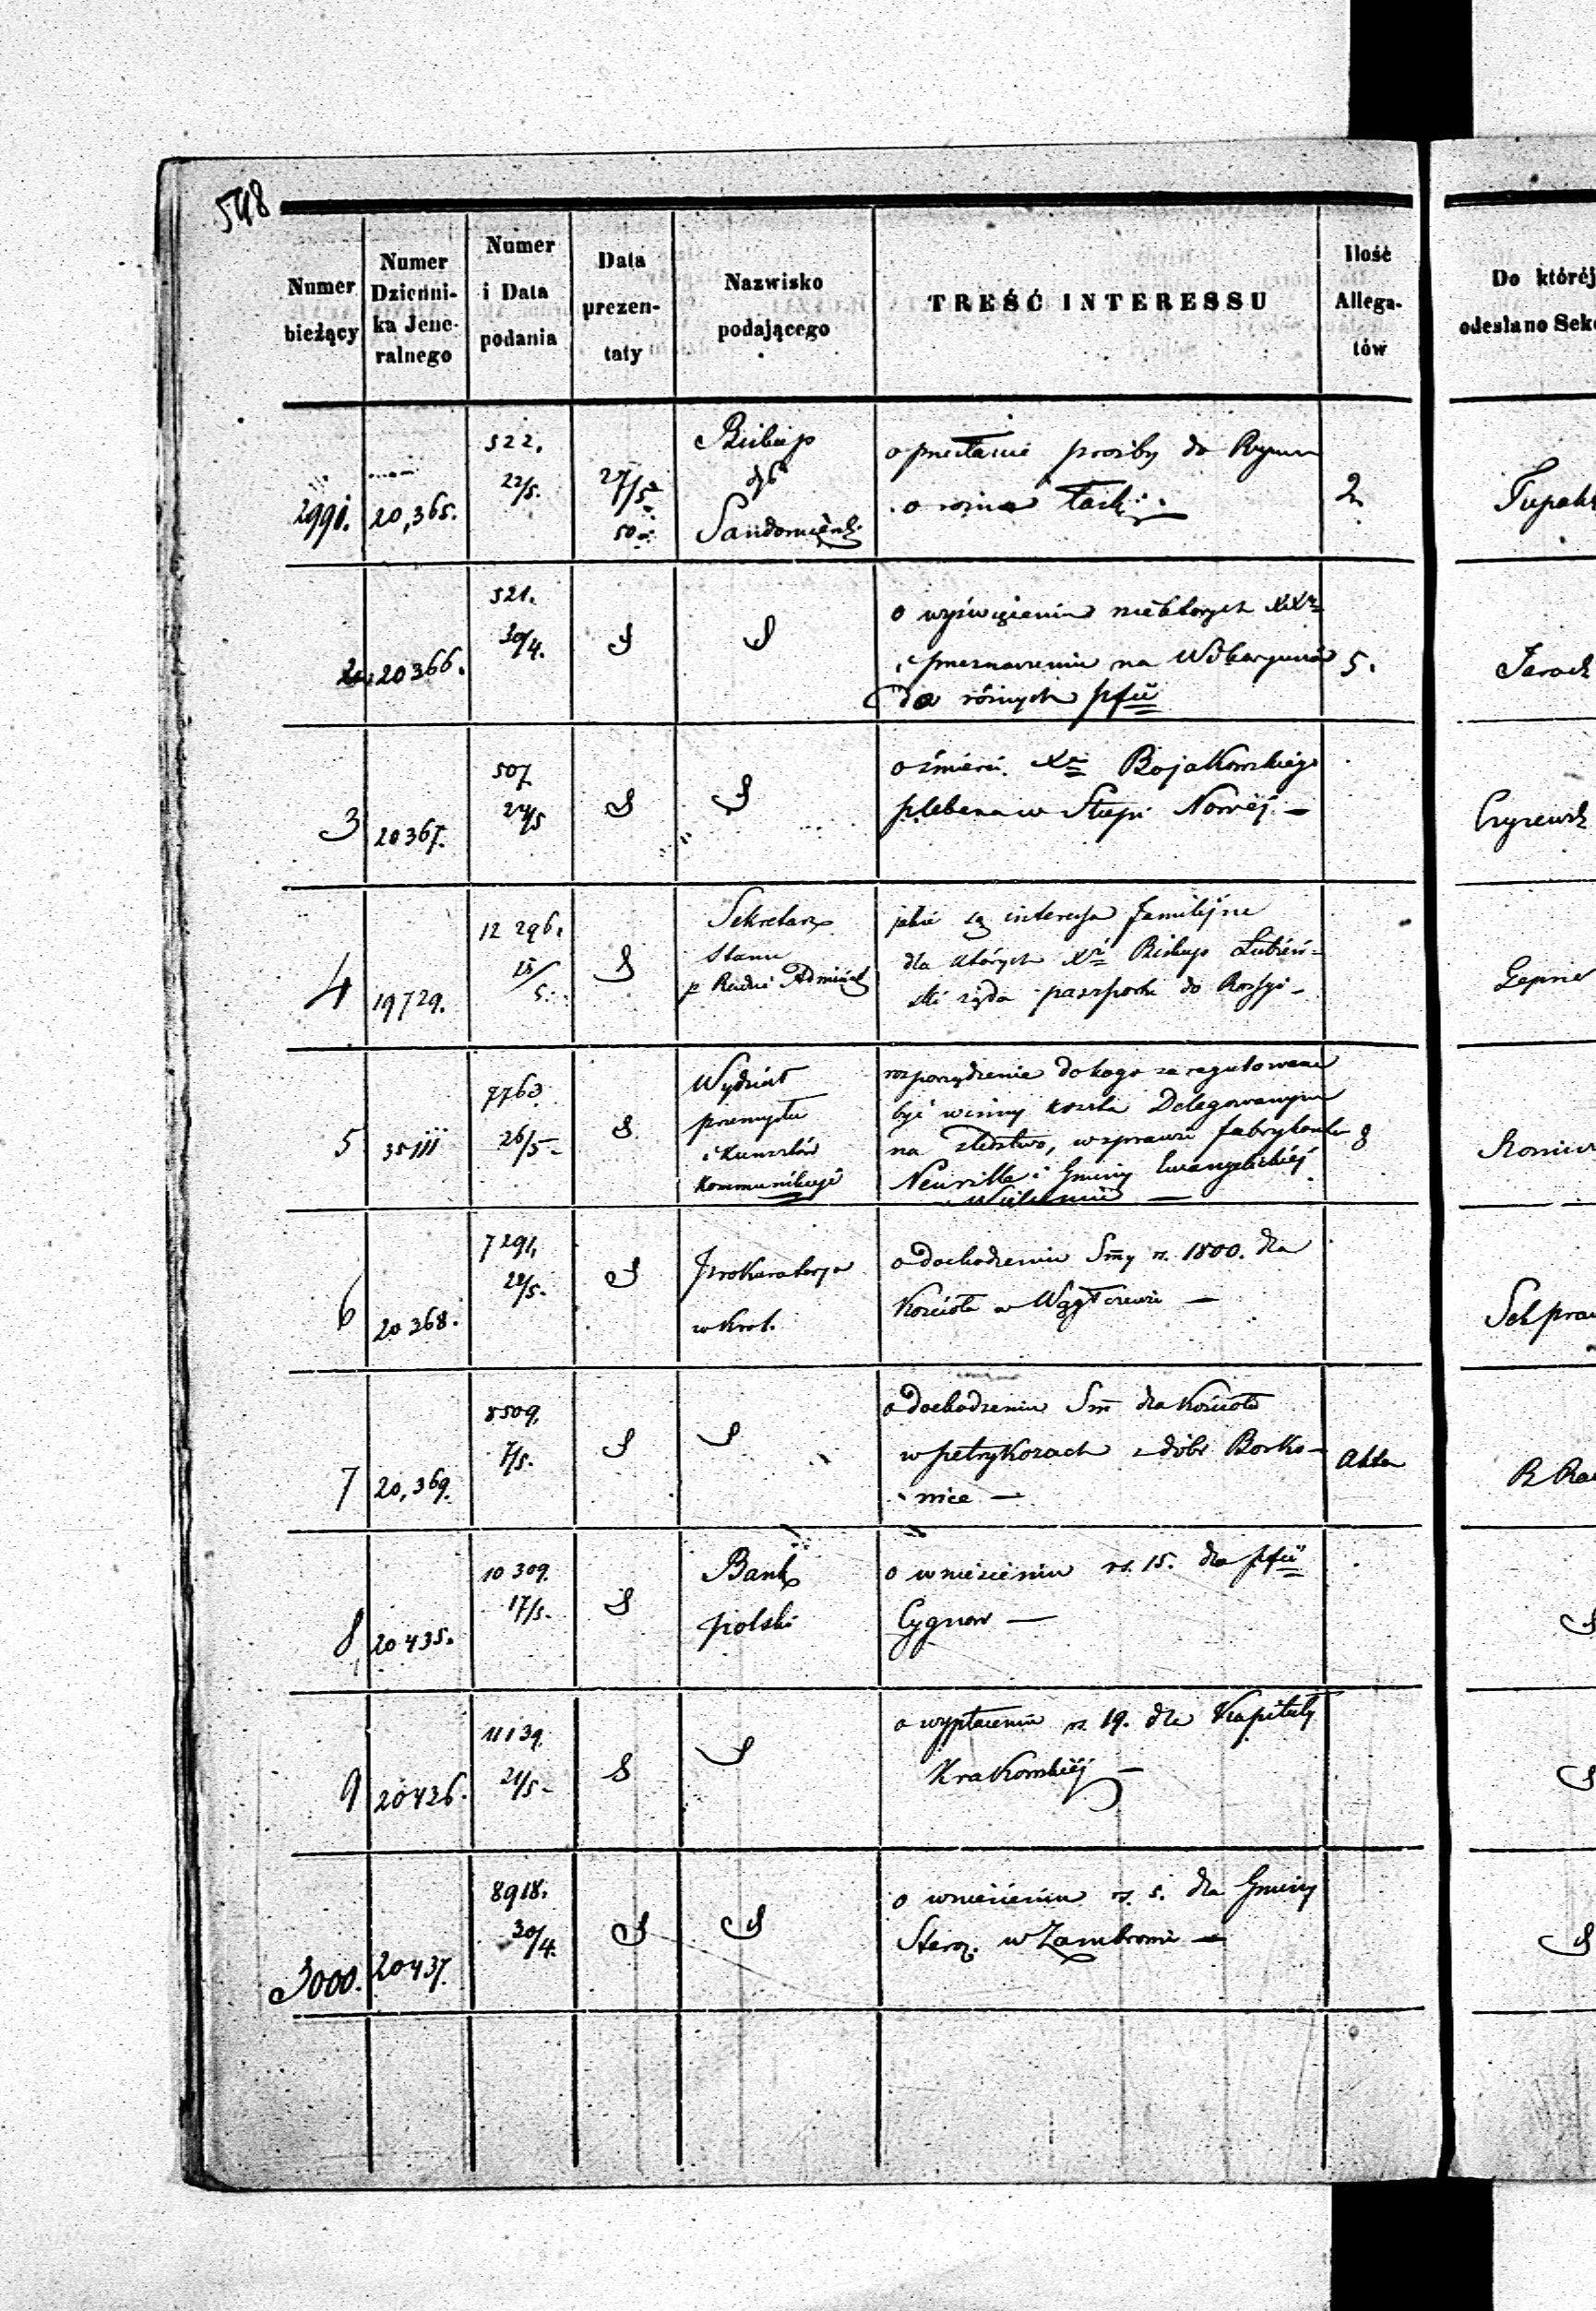 548
Numer bieżący
Numer Dzienni-
ka Jene-
ralnego
Numer
i Data
podania
Data
prezen-
taty
Nazwisko
podającego
TREŚĆ INTERESSU
Ilość
Allega-
tów
Do któréj
odesłano Sek
2991.
20,365.
522.
22/5.
27/5
50
Biskup
Sandomiersk.
o przesłanie prośby do Rzymu
o różne łaski.
2
20366.
521.
30/4.
S
S
o wyświęceniu niektórych XX
i przeznaczeniu na Wikaryuszów
do różnych pfii
5.
Jarock
3
20367.
507
24/5
S
S
o śmierci Xa Bojakowskiego
plebana w Słupi Nowéj —
Czyzewsk
4
19729.
12 296.
15/5.
S
Sekretarz
Stanu
p Radzie Administ
jakie są interessa familijne
dla których Xa Biskup Łubień-
ski żąda paszportu do Rossyi —
Lepne
5
35111
7763
26/5 —
S
Wydział
przemysłu
i Kunsztów
Kommunikuje
rozporządzenie do kogo zaregulowane
być winny koszta Delegowanym
na śledztwo, w sprawie fabrykanta
Neuville i Gminy Ewangelickiéj
w Wieluniu —
8
6
20368.
7291.
22/5.
S
Prokuratorya
w Król.
o dochodzeniu Smy rs. 1800. dla
Kościoła w Wągłczewie —
Sek praw
7
20,369.
8509.
7/5.
S
S
o dochodzeniu Sm dla Kościoła
w petrykozach z dóbr Borko-
nice —
Akta
R Ra
8
20435.
10 309.
17/5.
S
Bank
polski
o wniesieniu rs. 15. dla pfii
Cygnow —
S
9
20436.
11139.
21/5 —
S
S
o wypłaceniu rs. 19. dla Kapituły
Krakowskiéj —
S
3000.
20437.
8918.
30/4.
S
S
o wniesieniu rs. 5. dla Gminy
Staroz. w Zambrowie —
S